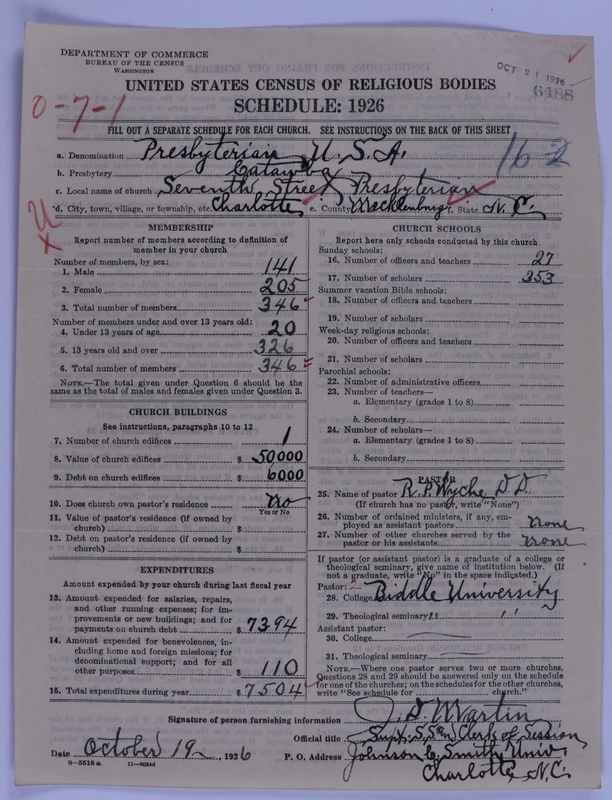 DEPARTMENT OF COMMERCE
BUREAU OF THE CENSUS
WASHINGTON
OCT 21 1926
6488
UNITED STATES CENSUS OF RELIGIOUS BODIES
SCHEDULE: 1926
0-7-1
FILL OUT A SEPARATE SCHEDULE FOR EACH CHURCH. SEE INSTRUCTIONS ON THE BACK OF THIS SHEET
16-2
a. Denomination Presbyterian U.S.A.
b. Presbytery Catawba
c. Local name of church Seventh Street Presbyterian
d. City, town, village, or township, etc. Charlotte e. County Mecklenburg f. State N.C.
MEMBERSHIP
Report number of members according to definition of
member in your church
Number of members, by sex:
1. Male 141
2. Female 205
3. Total number of members 346
Number of members under and over 13 years old:
4. Under 13 years of age 20
5. 13 years old and over 326
6. Total number of members 346
NOTE.—The total given under Question 6 should be
the same as the total of males and females given under Question 3.
CHURCH BUILDINGS
See instructions, paragraphs 10 to 12
7. Number of church edifices 1
8. Value of church edifices $ 50000
9. Debt on church edifices $ 6000
10. Does church own pastor's residence no
Yes or No
11. Value of pastor's residence (if owned by
church) $
12. Debt on pastor's residence (if owned by
church) $
EXPENDITURES
Amount expended by your church during last fiscal year
13. Amount expended for salaries, repairs,
and other running expenses; for im-
provements or new buildings; and for
payments on church debt $ 7394
14. Amount expended for benevolences, in-
cluding home and foreign missions; for
denominational support; and for all
other purposes $ 110
15. Total expenditures during year $ 7504
CHURCH SCHOOLS
Report here only schools conducted by this church
Sunday schools:
16. Number of officers and teachers 27
17. Number of scholars 353
Summer vacation Bible schools:
18. Number of officers and teachers
19. Number of scholars
Week-day religious schools:
20. Number of officers and teachers
21. Number of scholars
Parochial schools:
22. Number of administrative officers
23. Number of teachers—
a. Elementary (grades 1 to 8)
b. Secondary
24. Number of scholars—
a. Elementary (grades 1 to 8)
b. Secondary
PASTOR
25. Name of pastor R. P. Wyche, D.D.
(If church has no pastor, write "None")
26. Number of ordained ministers, if any, em-
ployed as assistant pastors none
27. Number of other churches served by the
pastor or his assistants none
If pastor (or assistant pastor) is a graduate of a college or
theological seminary, give name of institution below. (If
not a graduate, write "No" in the space indicated.)
Pastor: 2
28. College Biddle University
29. Theological seminary " "
Assistant pastor:
30. College
31. Theological seminary
NOTE.—Where one pastor serves two or more churches,
Questions 28 and 29 should be answered only on the schedule
for one of the churches; on the schedules for the other churches,
write "See schedule for church."
Signature of person furnishing information J. D. Martin
Official title Supt. S.S. Clerk of Session
Date October 19, 1926 P. O. Address Johnson C. Smith Univ.
8-5518a Charlotte, N.C.